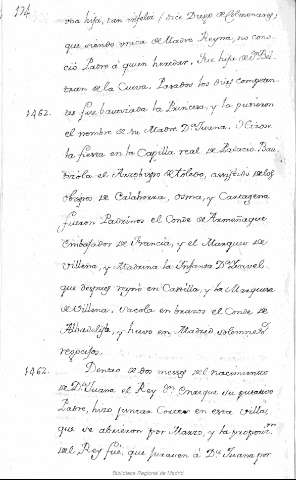 174
una hija, tan infeliz (dice Diego de Colmenares)
que siendo unica de Madre Reyna, no cono-
ció Padre á quien heredar. Fue hija de Dn. Bel-
tran de la Cueva. Pasados los dias competen-
1462. tes fue bautizada la Princesa, y la pusieron
el nombre de su Madre Da. Juana. Hizose
la fiesta en la Capilla real de Palacio Bau-
tizola el Arzobispo de Toledo, asistido de los
obispos de Calahorra, osma, y Cartagena
fueron Padrinos el Conde de Armeñaque
embajador de Francia, y el Marques de
Villena, y Madrina la Infanta Da. Isavel
que despues reynó en Castilla, y la Marquesa
de Villena, en brazos el Conde de
y huvo en Madrid solemnes
regocijos.
1462. Dentro de dos meses del nacimiento
de Da. Juana el Rey Dn. Enrique su putativo
Padre, hizo juntar Cortes en esta villa,
que se abrieron por Marzo, y la proposicn.
del Rey fué, que jurasen á Da. Juana por
Biblioteca Regional de Madrid